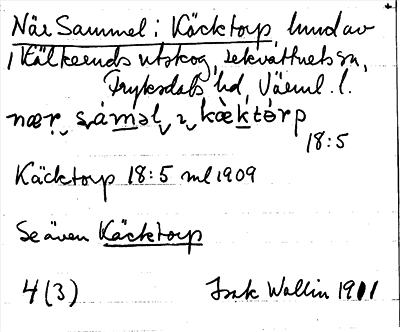 När Sammel i Käcktorp, hmd av
i Kälkeruds utskog, Lekvattnets sn,
Fryksdals hd, Värml. l.
nær sáməl ɩ kæ̀ktòrp
18:5
Käcktorp 18:5 ml 1909
Se även Käcktorp
4 (3) Isak Wallin 1911